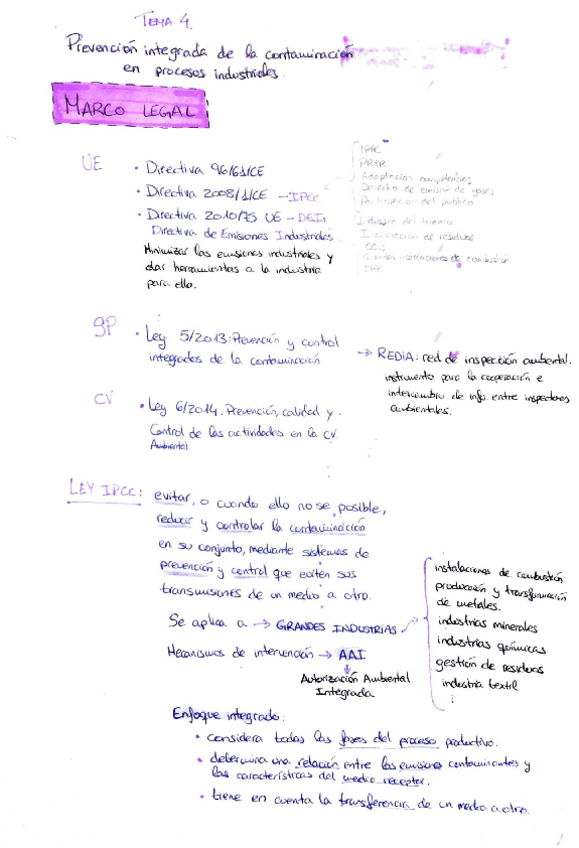 TEMA 4.
Prevención integrada de la contaminación
en procesos industriales.
MARCO LEGAL
UE
• Directiva 96/61/CE
• Directiva 2008/1/CE → IPCC
• Directiva 2010/75 UE - DEI
Directiva de Emisiones Industriales
Minimizar las emisiones industriales y
dar herramientas a la industria
para ello.
IPPC
PRTR
Adaptación competencias
Derecho de emisión de gases
Participación del público
Incineración de residuos
Grandes instalaciones de combustión
SP
• Ley 5/2013: Prevención y control
integrados de la contaminación
→ REDIA: red de inspección ambiental.
instrumento para la cooperación e
intercambio de info. entre inspectores
ambientales.
CV
• Ley 6/2014. Prevención, calidad y
Control de las actividades en la CV.
Ambiental
LEY IPCC: evitar, o cuando ello no se posible,
reducir y controlar la contaminación
en su conjunto, mediante sistemas de
prevención y control que eviten sus
transmisiones de un medio a otro.
Se aplica a → GRANDES INDUSTRIAS
instalaciones de combustión
producción y transformación
de metales.
industrias minerales
industrias químicas
gestión de residuos
industria textil
⋮
Mecanismos de intervención → AAI
Autorización Ambiental
Integrada
Enfoque integrado:
• considera todas las fases del proceso productivo.
• determina una relación entre las emisiones contaminantes y
las características del medio receptor.
• tiene en cuenta la transferencia de un medio a otro.